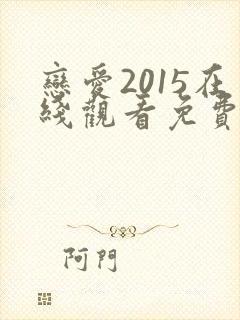 戀愛2015在
綫觀看免費
阿門